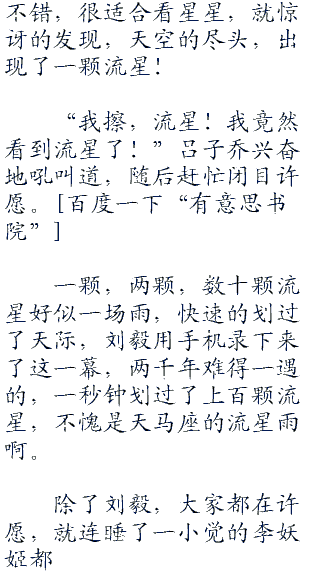 不错，很适合看星星，就惊
讶的发现，天空的尽头，出
现了一颗流星！
“我擦，流星！我竟然
看到流星了！”吕子乔兴奋
地吼叫道，随后赶忙闭目许
愿。[百度一下“有意思书
院”]
一颗，两颗，数十颗流
星好似一场雨，快速的划过
了天际，刘毅用手机录下来
了这一幕，两千年难得一遇
的，一秒钟划过了上百颗流
星，不愧是天马座的流星雨
啊。
除了刘毅，大家都在许
愿，就连睡了一小觉的李妖
姬都